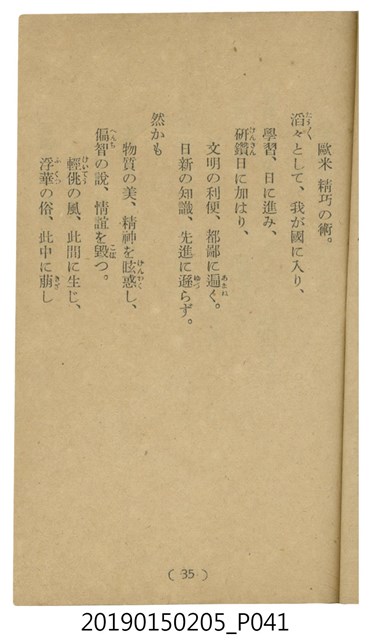 歐米 精巧の術。
滔々として、我が國に入り、
學習、日に進み、
硏鑽日に加はり、
文明の利便、都鄙に遍く。
日新の知識、先進に遜らず。
然かも
物質の美、精神を眩惑し、
偏智の說、情誼を毀つ。
輕佻の風、此間に生じ、
浮華の俗、此中に萠し
( 35 )
20190150205_P041